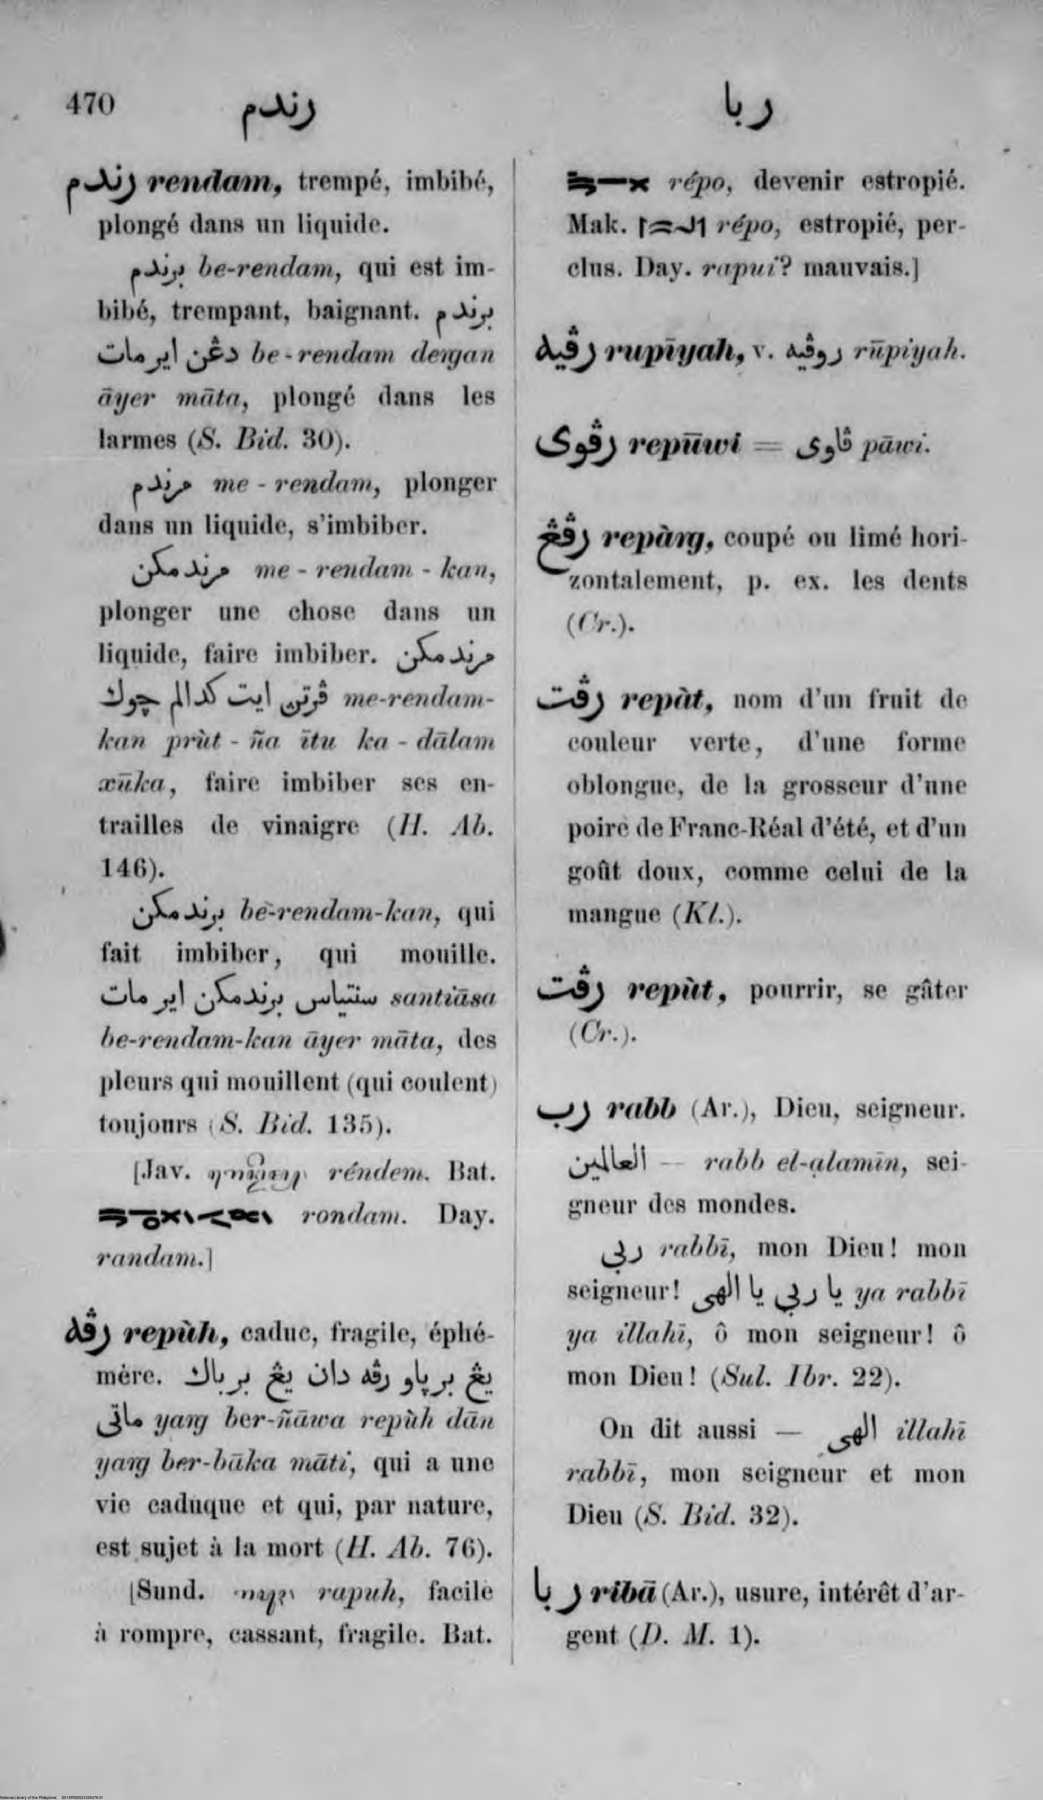 470 رندم ربا
رندم rendam, trempé, imbibé,
plongé dans un liquide.
برندم be-rendam, qui est im-
bibé, trempant, baignant. برندم
دڠن اير مات be-rendam deṛgan
āyer māta, plongé dans les
larmes (S. Bid. 30).
مرندم me-rendam, plonger
dans un liquide, s'imbiber.
مرندمكن me-rendam-kan,
plonger une chose dans un
liquide, faire imbiber. مرندمكن
ڤرتن ايت كدالم چوك me-rendam-
kan prùt-ña ītu ka-dālam
xūka, faire imbiber ses en-
trailles de vinaigre (H. Ab.
146).
برندمكن be-rendam-kan, qui
fait imbiber, qui mouille.
سنتياس برندمكن اير مات santiāsa
be-rendam-kan āyer māta, des
pleurs qui mouillent (qui coulent)
toujours (S. Bid. 135).
[Jav. réndem. Bat.
rondam. Day.
randam.]
رڤه repùh, caduc, fragile, éphé-
mère. يڠ برڽاو رڤه دان يڠ برباك
ماتى yaṛg ber-ñāwa repùh dān
yaṛg ber-bāka māti, qui a une
vie caduque et qui, par nature,
est sujet à la mort (H. Ab. 76).
[Sund. rapuh, facile
à rompre, cassant, fragile. Bat.
répo, devenir estropié.
Mak. répo, estropié, per-
clus. Day. rapui? mauvais.]
رڤيه rupīyah, v. روڤيه rūpiyah.
رڤوى repūwi = ڤاوى pāwi.
رڤڠ repàṛg, coupé ou limé hori-
zontalement, p. ex. les dents
(Cr.).
رڤت repàt, nom d'un fruit de
couleur verte, d'une forme
oblongue, de la grosseur d'une
poire de Franc-Réal d'été, et d'un
goût doux, comme celui de la
mangue (Kl.).
رڤت repùt, pourrir, se gâter
(Cr.).
رب rabb (Ar.), Dieu, seigneur.
العالمين — rabb el-ạlamīn, sei-
gneur des mondes.
ربي rabbī, mon Dieu! mon
seigneur! يا ربي يا الهى ya rabbī
ya illahī, ô mon seigneur! ô
mon Dieu! (Sul. Ibr. 22).
On dit aussi — الهى illahī
rabbī, mon seigneur et mon
Dieu (S. Bid. 32).
ربا ribā (Ar.), usure, intérêt d'ar-
gent (D. M. 1).